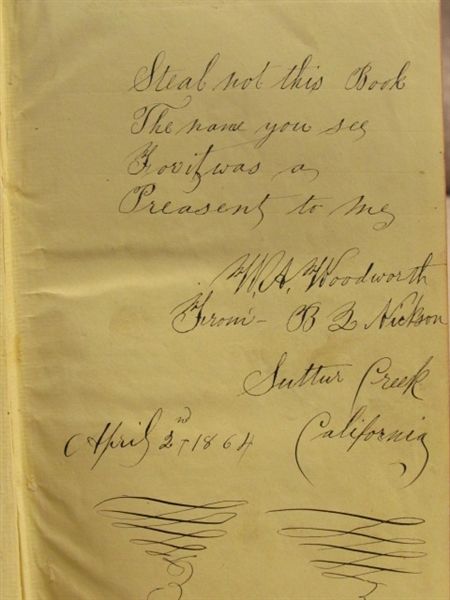 Steal not this Book
The name you see
For it was a
Preasent to me
W. A. Woodworth
From - B Q Nickson
Suttur Creek
April 2nd 1864 California